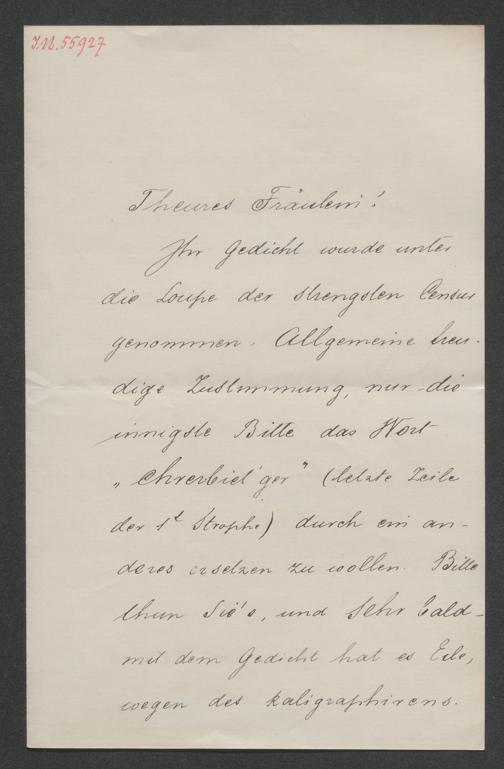 I.N. 55927
Theures Fräulein!
Ihr Gedicht wurde unter
die Loupe der strengsten Censur
genommen. Allgemeine freu-
dige Zustimmung, nur die
innigste Bitte das Wort
„ehrerbiet'ger" (letzte Zeile
der 1t Strophe) durch ein an-
deres ersetzen zu wollen. Bitte
thun Sie's, und sehr bald -
mit dem Gedicht hat es Eile,
wegen des kaligraphirens.